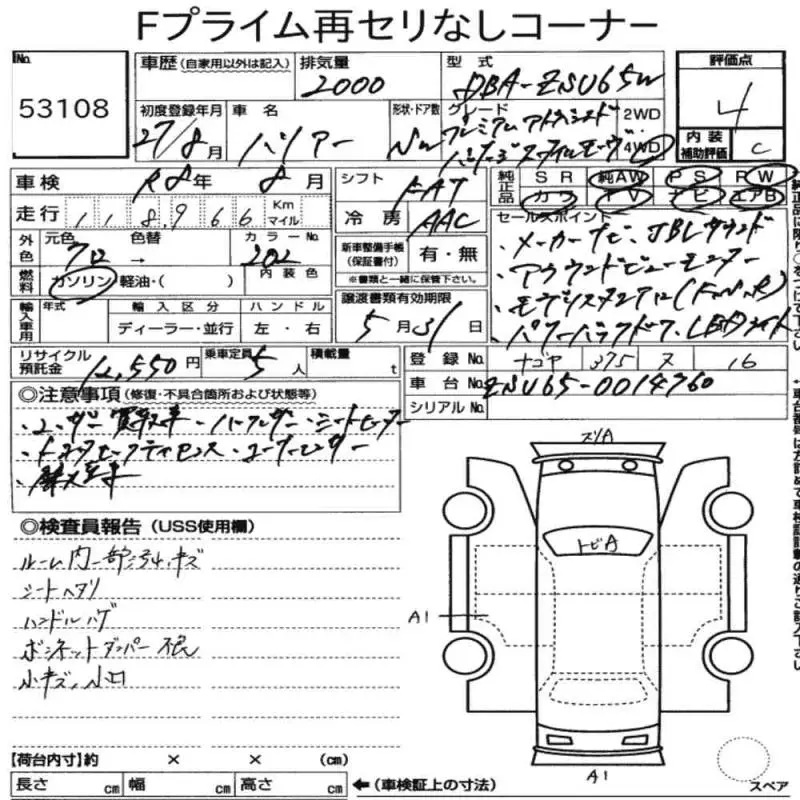 Fプライム再セリなしコーナー
No.
53108
車歴 (自家用以外は記入)
排気量
2000
型式
DBA-ZSU65W
評価点
4
内装
補助評価
C
初度登録年月
27/8月
車名
ハリアー
形状・ドア数
グレード
プレミアム アドバンスド
パッケージ スタイルモーヴ
2WD
4WD
車検
R8年 8月
シフト
FAT
純正品
SR 純AW PS RW
カワ TV ナビ エアB
走行
118966
Km
マイル
冷房
AAC
外色
元色
クロ
色替
→
カラーNo.
202
新車整備手帳
(保証書付)
有・無
※書類と一緒に保管下さい。
セールスポイント
・メーカーナビ、JBLサウンド
・アラウンドビューモニター
・モデリスタエアロ(F,S,R)
・パワーバックドア、LEDライト
燃料
ガソリン 軽油・( )
内装色
輸入車用
年式
輸入区分
ハンドル
ディーラー・並行
左・右
譲渡書類有効期限
5月31日
リサイクル
預託金
12,550円
乗車定員
5人
積載量
t
登録No.
ナゴヤ 375 ヌ 16
車台No.
ZSU65-0014760
シリアルNo.
◎注意事項 (修復・不具合箇所および状態等)
・ユーザー買取車・パークレザー・シートヒーター
・トヨタセーフティセンス・コーナーセンサー
・禁煙車
◎検査員報告 (USS使用欄)
ルーム内一部ヨゴレ、キズ
シートヘタリ
ハンドルハゲ
ボンネットダンパー不良
小キズ、小凹
スリA
トビA
A1
A1
【荷台内寸】約 × × (cm)
長さ cm 幅 cm 高さ cm
←(車検証上の寸法)
スペア